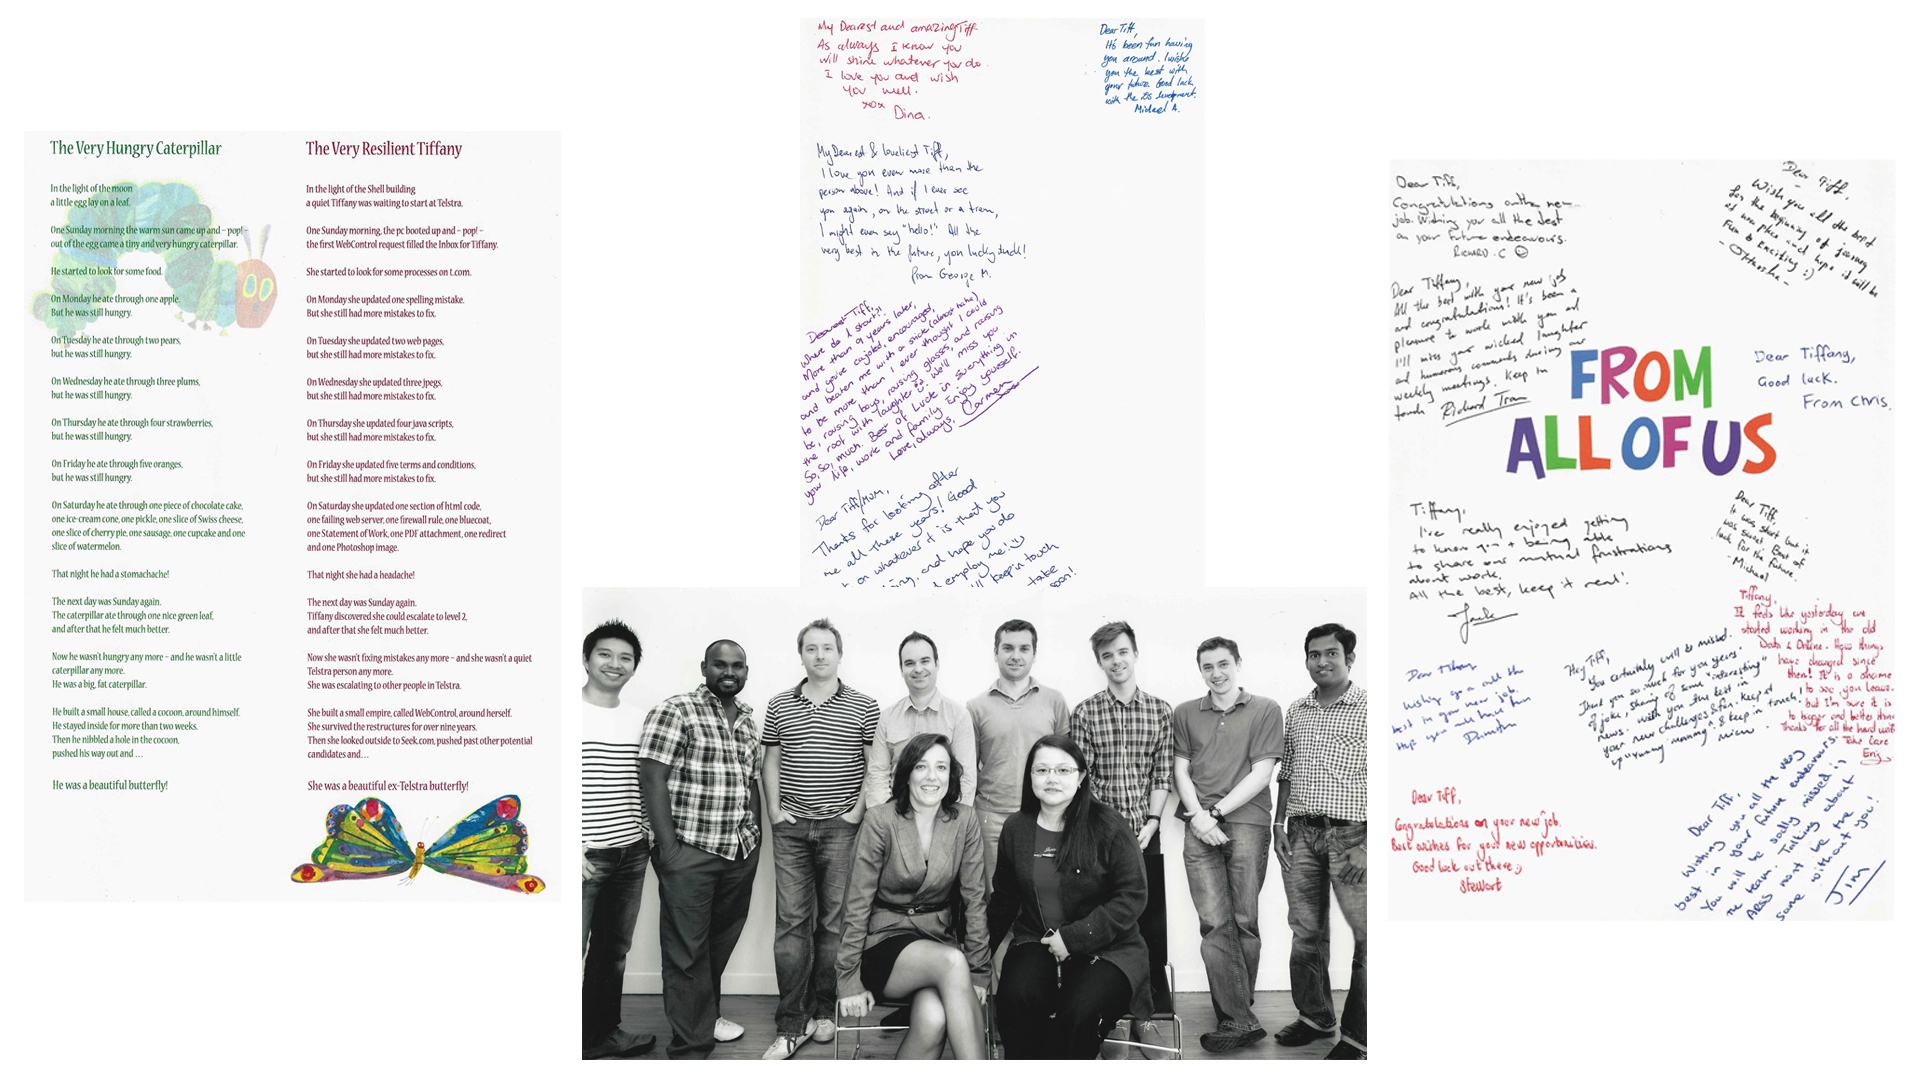 The Very Hungry Caterpillar
In the light of the moon
a little egg lay on a leaf.
One Sunday morning the warm sun came up and – pop! –
out of the egg came a tiny and very hungry caterpillar.
He started to look for some food.
On Monday he ate through one apple.
But he was still hungry.
On Tuesday he ate through two pears,
but he was still hungry.
On Wednesday he ate through three plums,
but he was still hungry.
On Thursday he ate through four strawberries,
but he was still hungry.
On Friday he ate through five oranges,
but he was still hungry.
On Saturday he ate through one piece of chocolate cake,
one ice-cream cone, one pickle, one slice of Swiss cheese,
one slice of cherry pie, one sausage, one cupcake and one
slice of watermelon.
That night he had a stomachache!
The next day was Sunday again.
The caterpillar ate through one nice green leaf,
and after that he felt much better.
Now he wasn't hungry any more – and he wasn't a little
caterpillar any more.
He was a big, fat caterpillar.
He built a small house, called a cocoon, around himself.
He stayed inside for more than two weeks.
Then he nibbled a hole in the cocoon,
pushed his way out and …
He was a beautiful butterfly!
The Very Resilient Tiffany
In the light of the Shell building
a quiet Tiffany was waiting to start at Telstra.
One Sunday morning, the pc booted up and – pop! –
the first WebControl request filled the Inbox for Tiffany.
She started to look for some processes on t.com.
On Monday she updated one spelling mistake.
But she still had more mistakes to fix.
On Tuesday she updated two web pages,
but she still had more mistakes to fix.
On Wednesday she updated three jpegs,
but she still had more mistakes to fix.
On Thursday she updated four java scripts,
but she still had more mistakes to fix.
On Friday she updated five terms and conditions,
but she still had more mistakes to fix.
On Saturday she updated one section of html code,
one failing web server, one firewall rule, one bluecoat,
one Statement of Work, one PDF attachment, one redirect
and one Photoshop image.
That night she had a headache!
The next day was Sunday again.
Tiffany discovered she could escalate to level 2,
and after that she felt much better.
Now she wasn't fixing mistakes any more – and she wasn't a quiet
Telstra person any more.
She was escalating to other people in Telstra.
She built a small empire, called WebControl, around herself.
She survived the restructures for over nine years.
Then she looked outside to Seek.com, pushed past other potential
candidates and…
She was a beautiful ex-Telstra butterfly!
My Dearest and amazing Tiff
As always I know you
will shine whatever you do.
I love you and wish
you well.
xox
Dina.
Dear Tiff,
It's been fun having
you around. I wish
you the best with
your future. Good luck
with the
Michael A.
My Dearest & loveliest Tiff,
I love you even more than the
person above! And if I ever see
you again, on the street or a tram,
I might even say "hello!" All the
very best in the future, you lucky duck!
From George M.
Dearest Tiff,
Where do I start?!
More than 9 years later,
and you've cajoled, encouraged,
and beaten me with a stick (almost take)
to be more than I ever thought I could
be, raising boys, raising glasses, and raising
the roof with laughter. We'll miss you
so, so, much. Best of Luck in everything in
your life, work and family. Enjoy yourself.
Love, always,
Carmen
Dear Tiff/Mum,
Thanks for looking after
me all these years! Good
on whatever it is that you
and hope you do
employ me! :)
keep in touch
take
soon!
Dear Tiff,
Congratulations on the new
job. Wishing you all the best
on your future endeavours.
Richard. C
Dear Tiff,
Wish you all the best
for the beginning of journey
at new place and hope it will be
Fun & Exciting :)
Dear Tiffany,
All the best with your new job
and congratulations! It's been a
pleasure to work with you and
I'll miss your wicked laughter
and humorous comments during our
weekly meetings. Keep in
touch Richard Tran
FROM
ALL OF US
Dear Tiffany,
Good luck.
From Chris.
Tiffany,
I've really enjoyed getting
to know you + being able
to share our mutual frustrations
about work.
All the best, keep it real!
Jack
Dear Tiff,
It was short but it
was sweet. Best of
luck for the future.
- Michael
Tiffany,
It feels like yesterday we
started working in the old
Data & Online. How things
have changed since
then! It is a shame
to see you leave.
but I'm sure it is
to bigger and better things
Thanks for all the hard work
Take Care
Hey Tiff,
You certainly will be missed.
Thank you so much for you years
of joke, sharing of some "interesting"
news. With you the best in
your new challenges & fun. Keep at
up "running morning" & keep in touch!
Dear Tiffany
Wishing you all the
best in your new job.
Hope you will have fun
Dear Tiff,
Congratulations on your new job.
Best wishes for your new opportunities.
Good luck out there ;)
Stewart
Dear Tiff,
Wishing you all the very
best in your future endeavours.
You will be sadly missed in
the team. Talking about
ARSS won't be the
same without you!
Jim